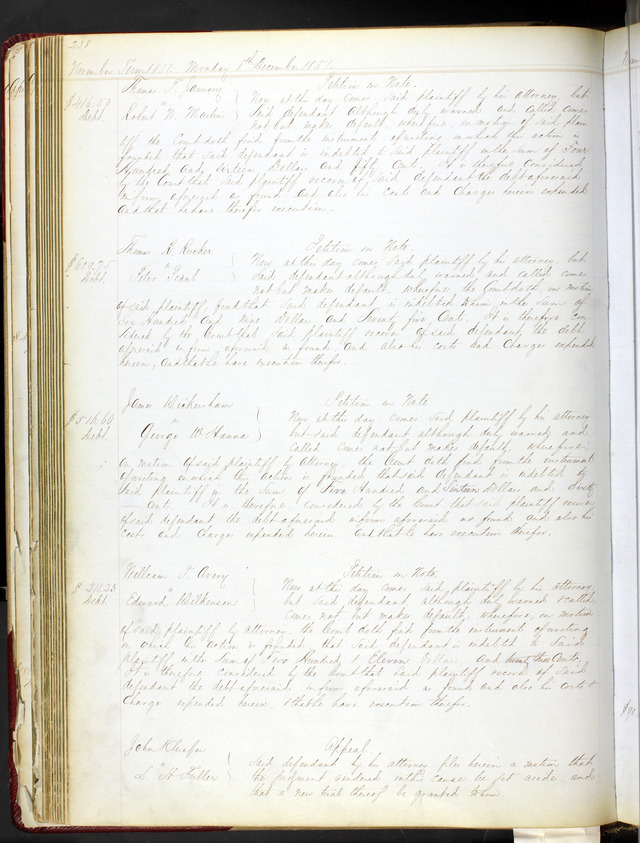 238
November Term 1851. Monday 8th December 1851.
Thomas T. January Petition on Note.
$416.50 Now at this day comes said plaintiff by his attorney, but
Debt. Robert W. Martin said defendant although duly warned and called comes
not but makes default, wherefore on motion of said plain
tiff the Court doth find from the instrument of writing on which the action is
founded that said defendant is indebted to said plaintiff in the sum of Four
Hundred and sixteen Dollars and fifty Cents. It is therefore Considered
by the Court that said plaintiff recover of said defendant the debt aforesaid
in form aforesaid as found and also his costs and Charges herein expended
and that he have therefor execution.
Thomas R. Rucker Petition on Note
$609.25 Now at this day comes said plaintiff by his attorney, but
Debt. Peter said defendant although duly warned and called comes
not but makes default, wherefore the Court doth, on motion
of said plaintiff, find that said defendant, is indebted to him in the sum of
Six Hundred and nine Dollars and Twenty five Cents. It is therefore con
sidered by the Court that said plaintiff recover of said defendant, the debt
aforesaid in form aforesaid as found and also his costs and charges expended
herein, and that he have execution therefor.
James Wickersham Petition on Note
$516.60 Now at this day comes said plaintiff by his attorney
Debt. George W Hanna but said defendant although duly warned, and
called comes not but makes default, wherefore
on motion of said plaintiff by attorney, the Court doth find from the instrument
of writing on which the action is founded that said defendant is indebted to
said plaintiff in the sum of Five Hundred and Sixteen Dollars and Sixty
Cents. It is therefore, considered by the Court that said plaintiff recover
of said defendant the debt aforesaid in form aforesaid as found and also his
costs and charges expended herein and that he have execution therefor.
William T. Avery Petition on Note
$211.23 Now at this day comes said plaintiff by his attorney,
Debt. Edward Wilkerson but said defendant, although duly warned & called
comes not but makes default, wherefore, on motion
of said plaintiff by attorney the Court doth find from the instrument of writing
on which the action is founded that said defendant is indebted to said
plaintiff in the sum of Two Hundred & Eleven Dollars and twenty three Cents.
It is therefore considered by the Court that said plaintiff recover of said
defendant the debt aforesaid in form aforesaid as found and also his costs &
charges expended herein, & that he have execution therefor.
John Appeal.
L H Fuller Said defendant by his attorney files herein a motion that
the judgment rendered in this cause be set aside and
that a new trial thereof be granted him.